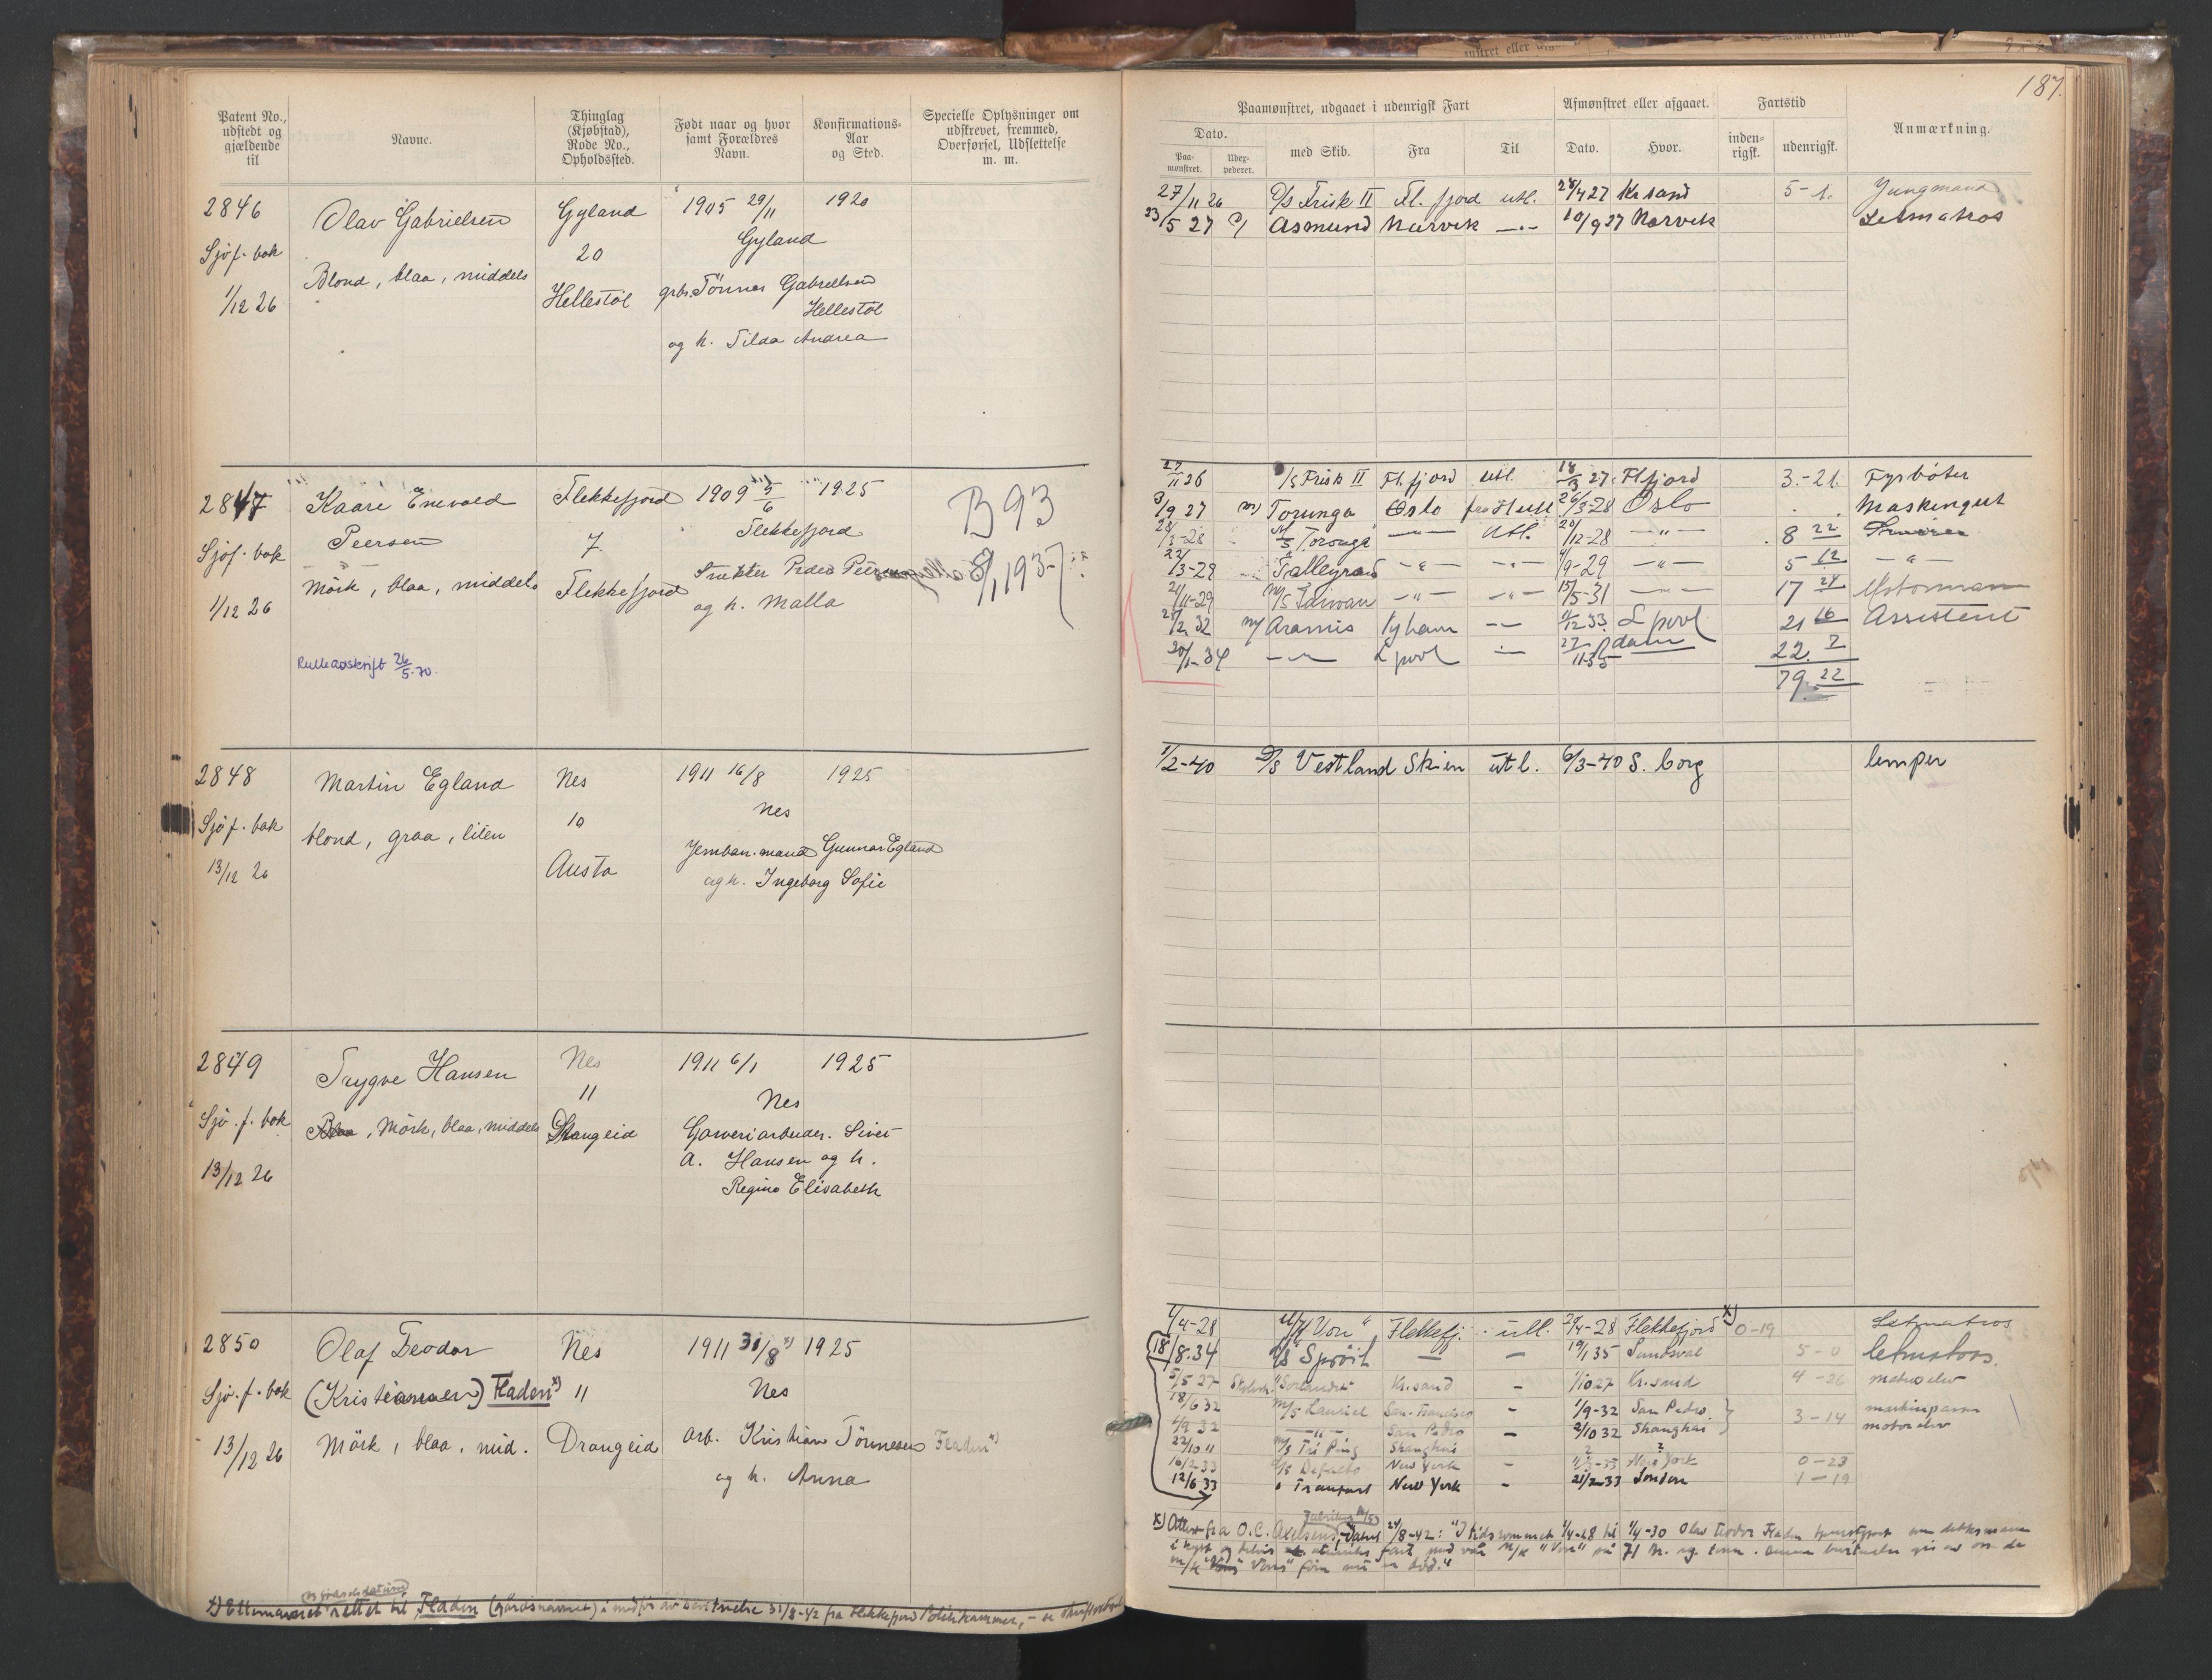 187.
Patent No., udstedt og gjældende til
Navne.
Thinglag (Kjøbstad), Rode No., Opholdssted.
Født naar og hvor samt Forældres Navn.
Konfirmations-Aar og Sted.
Specielle Oplysninger om udskrevet, fremmed, Overførsel, Udslettelse m. m.
Paamønstret, udgaaet i udenrigsk Fart
Afmønstret eller afgaaet.
Fartstid
Anmærkning.
Dato.
Paa-mønstret.
Udex-pederet.
med Skib.
Fra
Til
Dato.
Hvor.
inden-rigsk.
udenrigsk.
2846 Olav Gabrielsen Gyland 1905 29/11 1920
Sjøf. bok Blond, blaa, middels 20 Gyland
1/12 26 Hellestøl grbr. Tönnes Gabrielsen
Hellestøl
og h. Tilda Andrea
27/11 26 D/S Frisk II Fl. fjord utl. 28/4 27 Kr sand 5-1. Jungmand
23/5 27 Asmund Narvik 10/9 27 Narvik Letmatros
2847 Kaare Enevald Flekkefjord 1909 5/6 1925 B 93
Peersen 7. Flekkefjord
Sjøf. bok Mörk, blaa, middels Flekkefjord Peder Peersen 8/1 1937
1/12 26 og h. Malla
Rulleavskrift 26/5-70.
27/11 26 D/S Frisk II Fl. fjord utl. 18/3 27 Fl. fjord 3.-21. Fyrbøter
3/9 27 m/ Torunga Oslo fra Hull 26/3-28 Oslo Maskingut
28/3-28 M/S Toronga — " — Utl. 20/12-28 — " — 8 22
22/3-29 Talleyrand — " — /9-29 — " — 5 12 — " —
21/11-29 M/S Taiwan — " — — " — 15/5-31 — " — 17 24 Motorman
25/2 32 m/ Aramis 11/12 33 L pool 21 16 Assistent
20/1-34 — " — L pool 27/11-35 R dam 22. 7
79. 22
2848 Martin Egland Nes 1911 16/8 1925
Sjøf. bok blond, graa, liten 10 Nes
13/12 26 Austa Jernban. mand Gunnar Egland
og h. Ingeborg Sofie
1/2-40 D/S Vestland Skien utl. 6/3-40 S. borg lemper
2849 Trygve Hansen Nes 1911 6/1 1925
11 Nes
Sjø. f. bok Blaa, Mörk, blaa, middels Drangeid Garveriarbeider. Sivert
13/12 26 A. Hansen og h.
Regine Elisabeth
2850 Olaf Teodor Nes 1911 31/8 x) 1925
Sjø. f. bok (Kristiansen) Fladen x) 11 Nes
13/12 26 Mörk, blaa, mid. Drangeid arb. Kristian Tönnesen Fladen x)
og h. Anna
1/4-28 M/K "Von" Flekkefj. utl. 29/4-28 Flekkefjord x) 0-19 Letmatros
18/8.34 D/S Sprøit — — 19/1 35 Sundsval 5-0 letmatros.
5/5 27 Skolesk. "Sørlandet" Kr. sand - 1/10 27 Kr. sand 4-26 matroselev
18/6 32 M/S Lauriel San-Francisco - 1/9-32 San Pedro 3-14
1/9 32 — " — San Pedro - 2/10 32 Shanghai motorelev
22/10 " M/S Tai Ping Shanghai ? ?
16/2-33 New York - New York 0-23
12/6 33 Tranfart New York - 21/7-33 London 1-19
x) Attest fra O.C. Axelsens Fabrikker A/S, datert 24/8-42: "I tidsrommet 1/4-28 til 1/4-30 Olav Teodor Fladen tjenstgjort som dekksmann
i kyst og delvis utenriks fart med vår M/K "Von" på 71 br. reg. tonn.
M/K "Von"s fører nu er død."
x) Etternavnet og fødselsdatum rettet til Fladen (gårdsnavnet) i medfør av bekreftelse 31/8-42 fra Flekkefjord Politikammer,